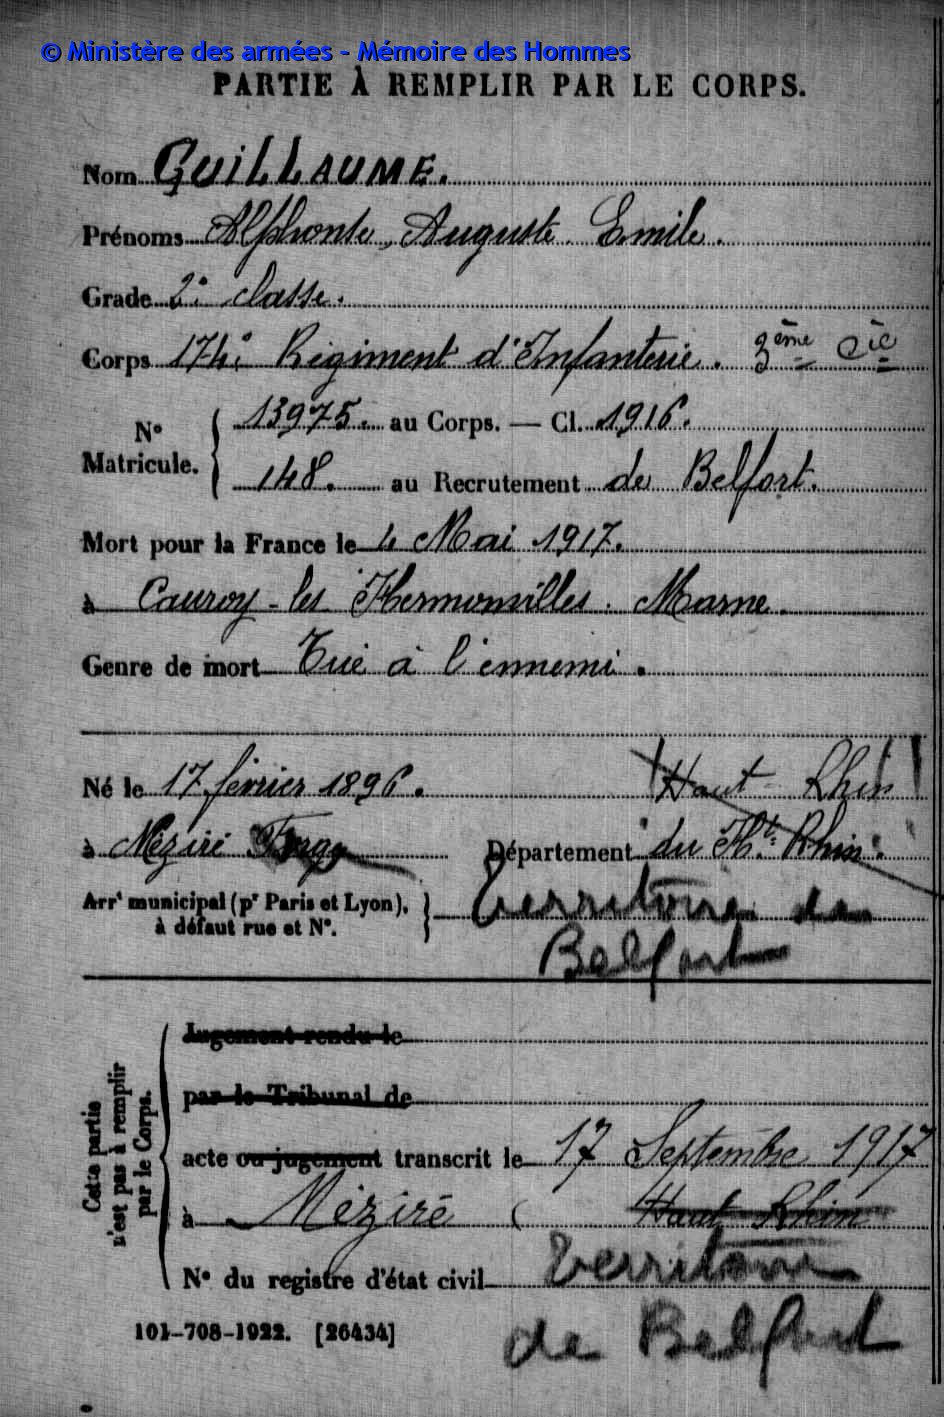 © Ministère des armées - Mémoire des Hommes
PARTIE À REMPLIR PAR LE CORPS.
Nom GUILLAUME.
Prénoms Alphonse, Auguste Emile.
Grade 2e classe.
Corps 174e Régiment d'Infanterie. 3ème Cie
N° Matricule. 13975. au Corps. — Cl. 1916.
148. au Recrutement de Belfort.
Mort pour la France le 4 Mai 1917.
à Cauroy-les Hermonvilles. Marne.
Genre de mort Tué à l'ennemi.
Né le 17 février 1896. Haut-Rhin
à Méziré Département du Ht Rhin.
Arrt municipal (pr Paris et Lyon), à défaut rue et N°. Territoire de
Belfort
Cette partie n'est pas à remplir par le Corps.
Jugement rendu le
par le Tribunal de
acte ou jugement transcrit le 17 Septembre 1917
à Méziré ( Haut Rhin
N° du registre d'état civil Territoire
101-708-1922. [26434] de Belfort